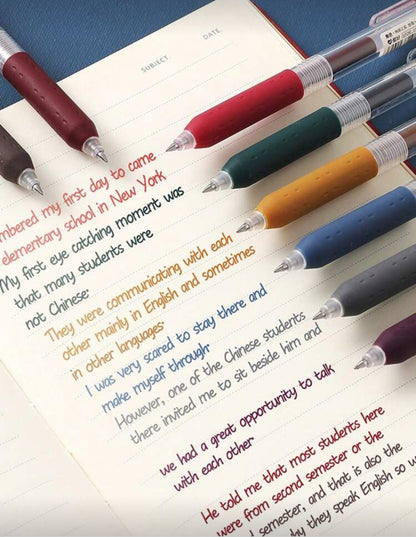 SUBJECT
DATE
mbered my first day to came
elementary school in New York
My first eye catching moment was
that many students were
not Chinese·
They were communicating with each
other mainly in English and sometimes
in other languages·
I was very scared to stay there and
make myself throughr
However, one of the Chinese students
there invited me to sit beside him and
we had a great opportunity to talk
with each other
He told me that most students here
were from second semester or the
semester, and that is also the
hy they speak English so w